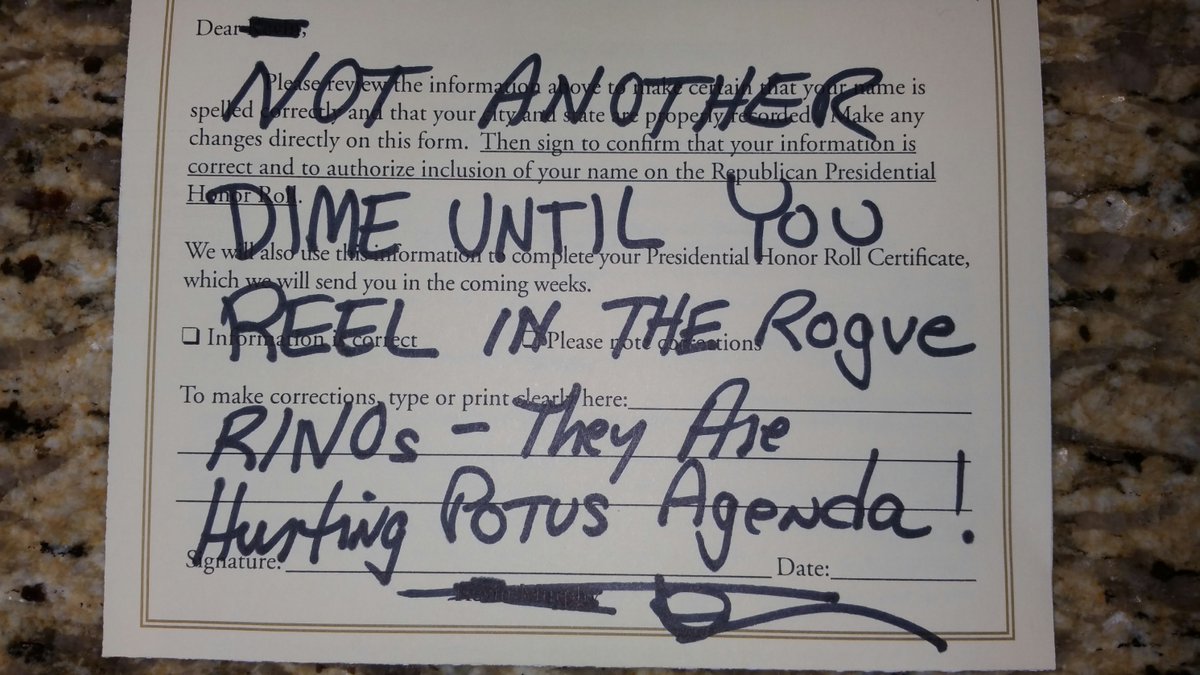 Dear
NOT ANOTHER
Please review the information above to make certain that your name is
spelled correctly and that your city and state are properly recorded. Make any
changes directly on this form. Then sign to confirm that your information is
correct and to authorize inclusion of your name on the Republican Presidential
Honor Roll.
DIME UNTIL YOU
We will also use this information to complete your Presidential Honor Roll Certificate,
which we will send you in the coming weeks.
REEL IN THE Rogue
❑ Information is correct ❑ Please note corrections
To make corrections, type or print clearly here:
RINOs - They Are
Hurting POTUS Agenda!
Signature: Date: